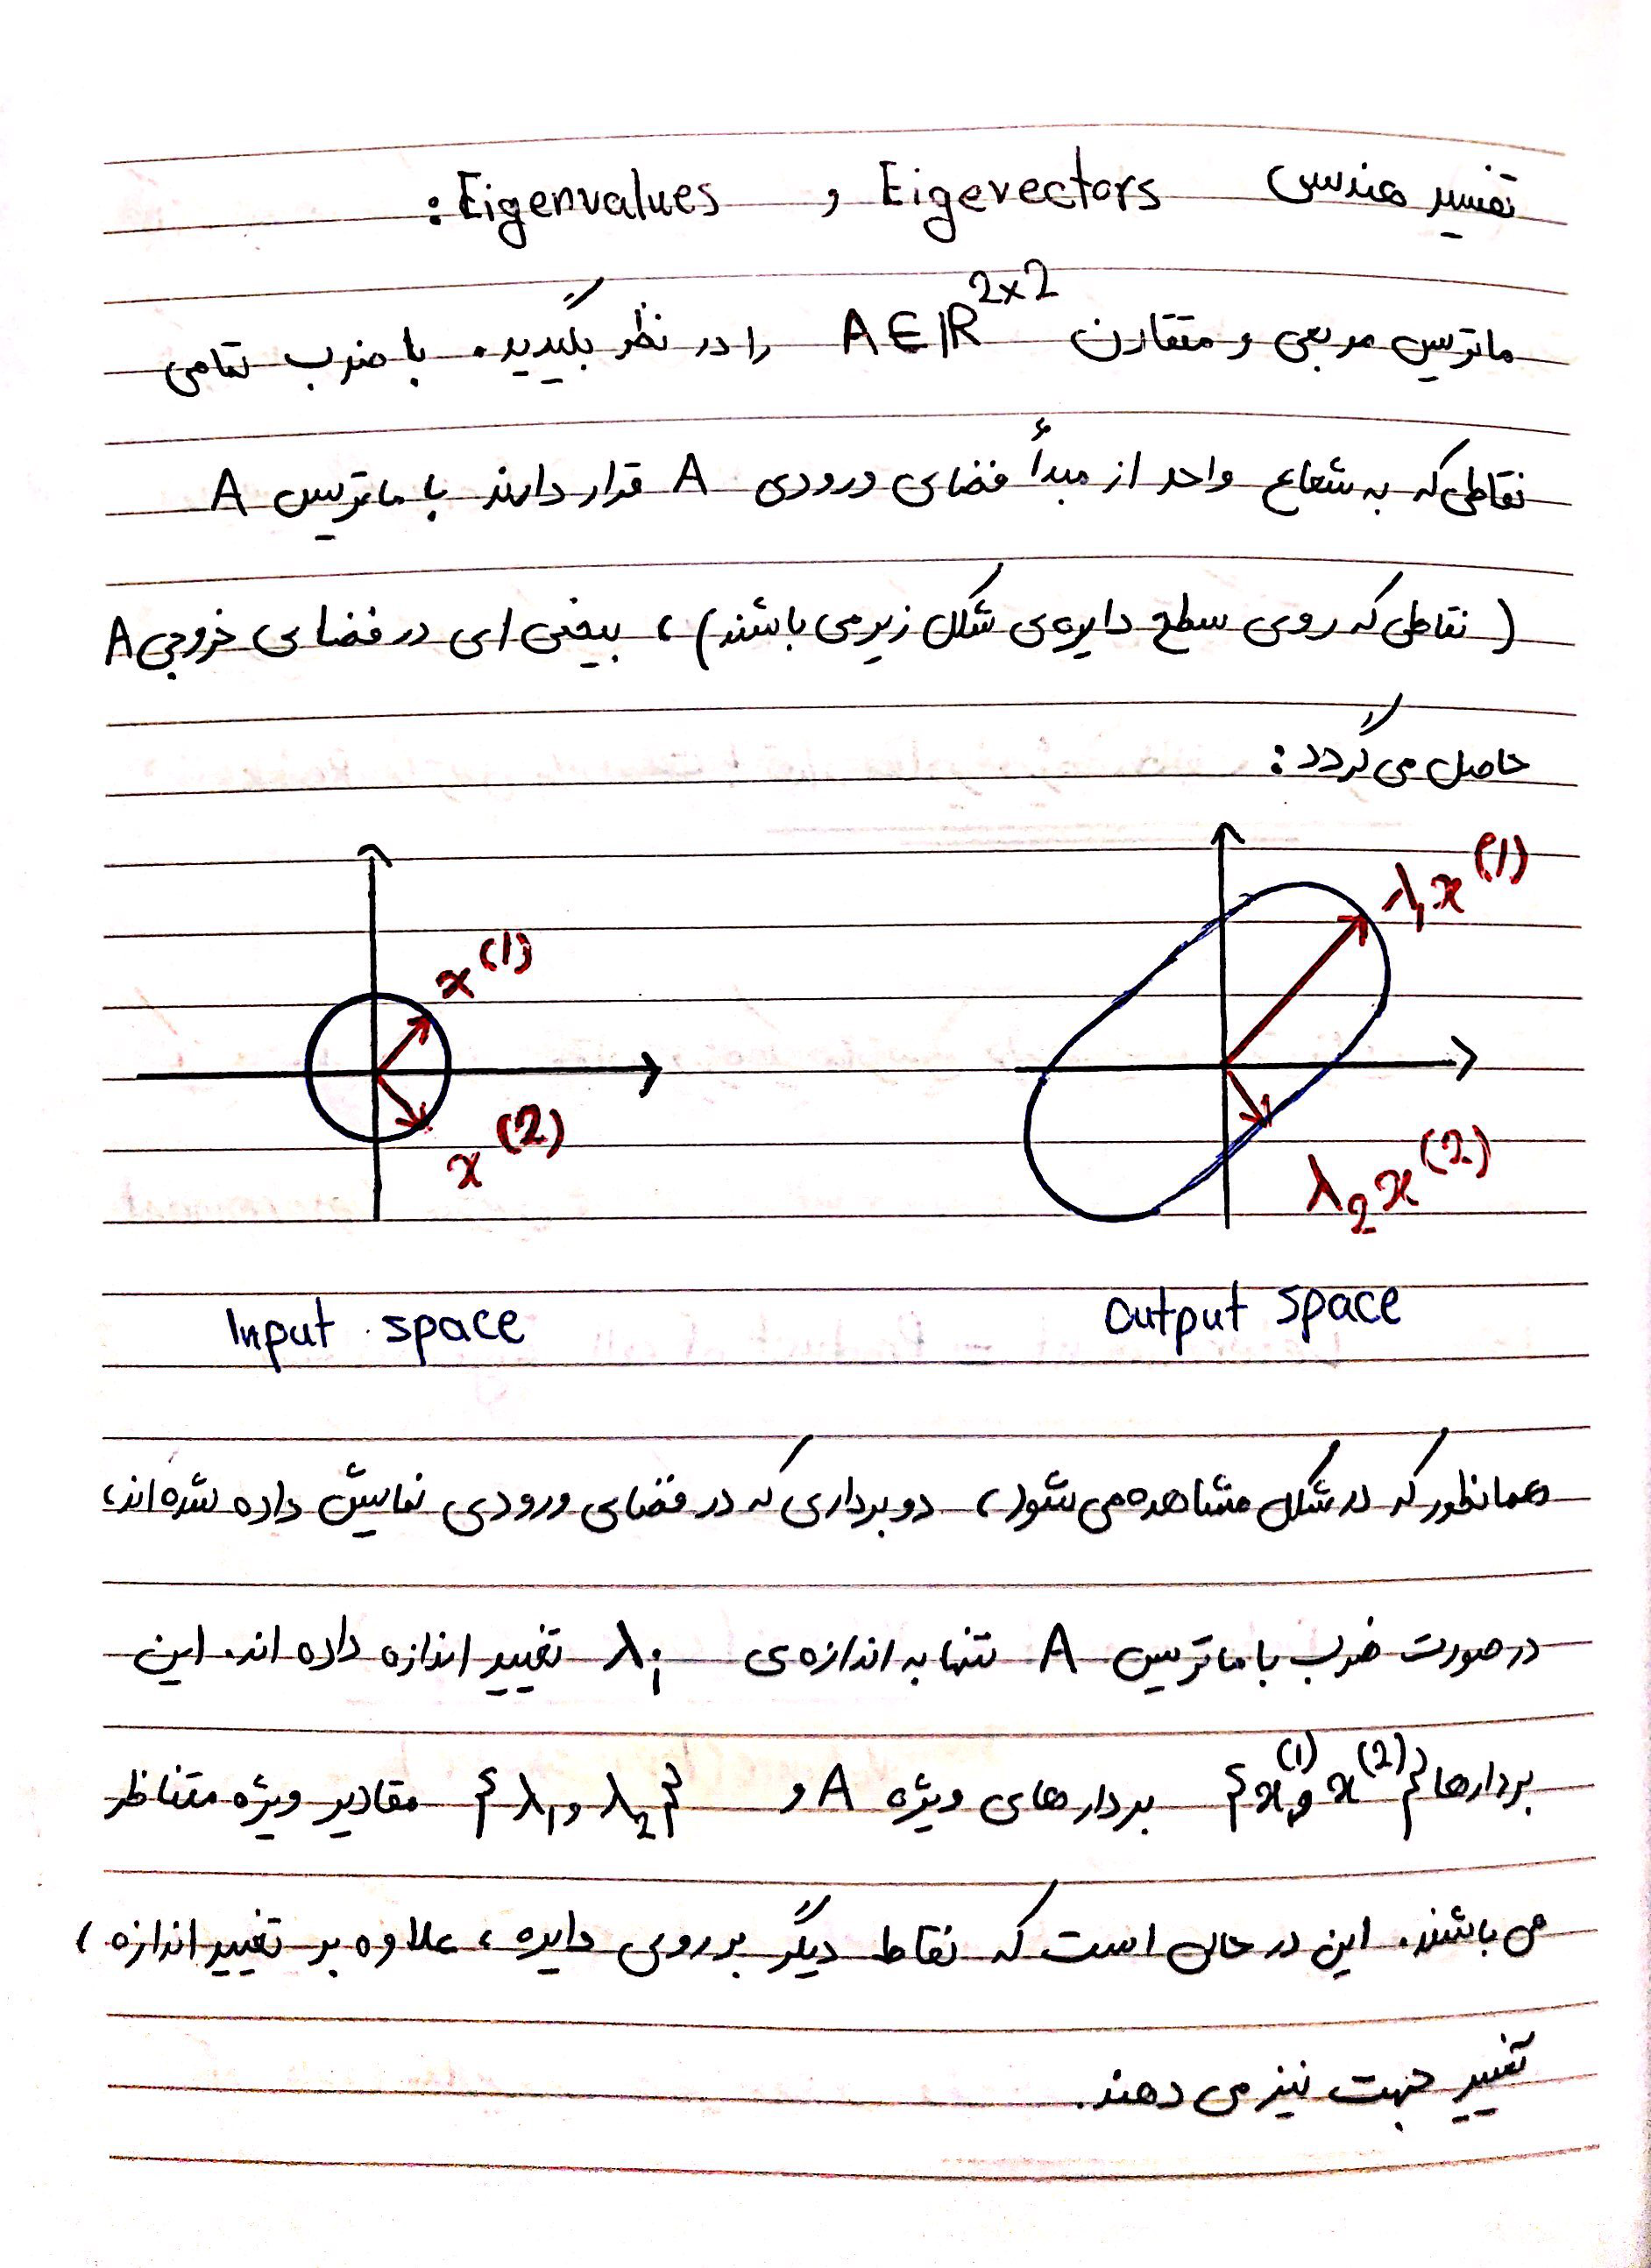 تفسیر هندسی Eigevectors و Eigenvalues :
ماتریس مربعی و متقارن A∈ℝ^{2×2} را در نظر بگیرید. با ضرب تمامی
نقاطی که به شعاع واحد از مبدأ فضای ورودی A قرار دارند با ماتریس A
(نقاطی که روی سطح دایره‌ی شکل زیر می باشند)، بیضی ای در فضای خروجی A
حاصل می گردد:
x^{(1)}
x^{(2)}
λ₁x^{(1)}
λ₂x^{(2)}
Input space
Output space
همانطور که در شکل مشاهده می شود، دو برداری که در فضای ورودی نمایش داده شده اند،
در صورت ضرب با ماتریس A تنها به اندازه ی λᵢ تغییر اندازه داده اند. این
بردارها {x^{(1)} و x^{(2)}} بردارهای ویژه A و {λ₁ و λ₂} مقادیر ویژه متناظر
می باشند. این در حالی است که نقاط دیگر بر روی دایره، علاوه بر تغییر اندازه،
تغییر جهت نیز می دهند.